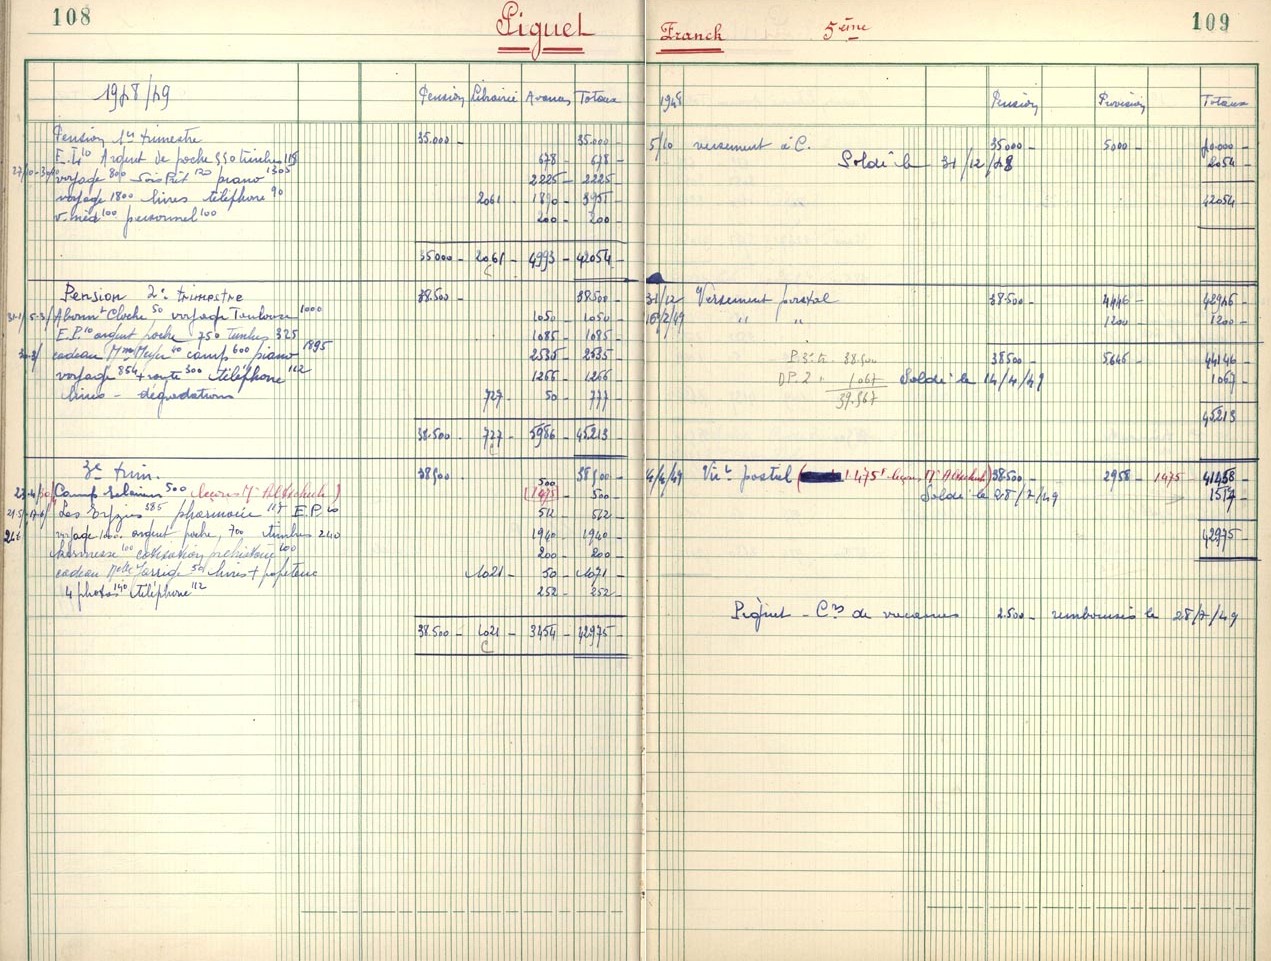 108
Piguet
1948/49 Pension Librairie Avances Totaux
Pension 1er trimestre 35.000 - 35.000 -
E.L 10 Argent de poche 550 timbres 118 678 - 678 -
27/10-30/10 voyage 800 120 piano 1305 2225 - 2225 -
voyage 1800 livres téléphone 90 2061 - 1890 - 3951 -
v. méd 100 personnel 100 200 - 200 -
35000 - 2061 - 4993 - 42054 -
Pension 2e trimestre 38.500 - 38.500 -
Abonnt Cloche 50, voyage Toulouse 1000 1050 - 1050 -
E.P. 10 argent poche 750 timbres 325 1085 - 1085 -
cadeau Mme 40 camp 600 piano 1895 2535 - 2535 -
voyage 854 + route 300 téléphone 112 1266 - 1266 -
livres - dégradations 727 - 50 - 777
38.500 - 727 - 5986 - 45213 -
3e trim. 38500 38500 -
Camp 500 (leçons Me Altschuh) 500 (1475) 500 -
21/5-17/6 385 pharmacie 117 E.P. 10 512 - 512 -
24/6 voyage 1000 argent poche, 700 timbres 240 1940 - 1940 -
kermesse 100 cotisation préhistoire 100 200 - 200 -
cadeau Melle 50 livres + papeterie 1021 - 50 - 1071 -
4 photos 140 téléphone 112 252 - 252 -
38.500 - 1021 - 3454 - 42975 -
Franck 5ème 109
1948 Pension Provision Totaux
5/10 versement à C. 35000 - 5000 - 40000 -
Soldé le 31/12/48 2054 -
42054 -
31/12 Versement postal 38.500 - 4446 - 42946 -
16/2/49 " " 1200 - 1200 -
P. 3e tr. 38.500 38500 - 5646 - 44146 -
DP. 2e 1067 Soldé le 14/4/49 1067 -
39.567
45213 -
14/4/49 Vt postal ( 1.475f leçons Me Altschuh) 38500 - 2958 - 1475 41458 -
Soldé le 28/7/49 1517 -
42975 -
Piguet - Cie de vacances 2.500 - remboursés le 28/7/49